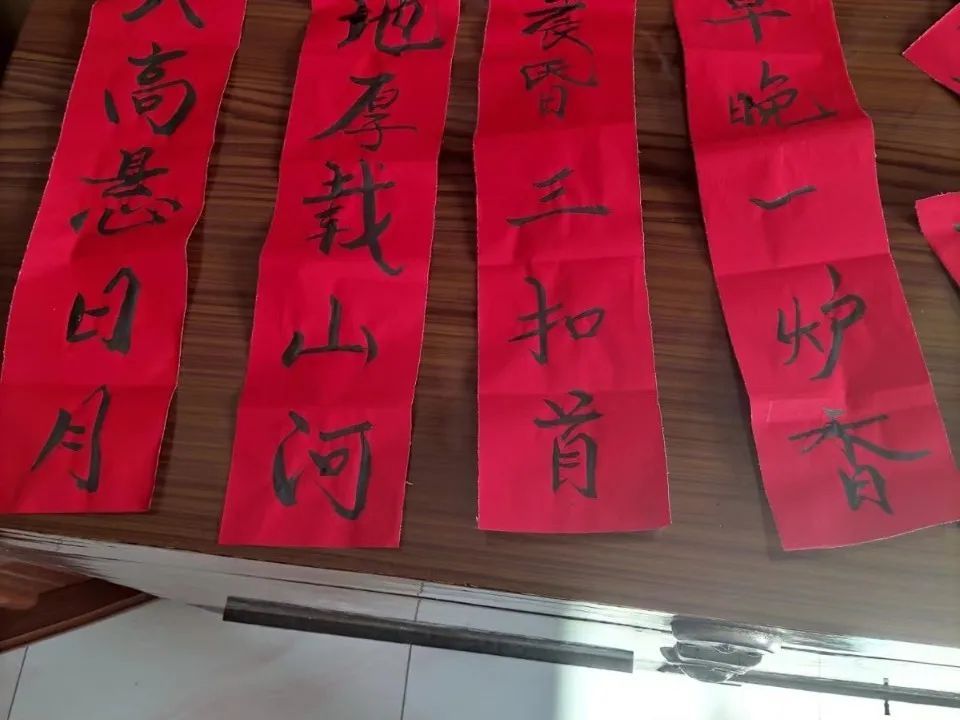 天高悬日月
地厚载山河
晨昏三扣首
早晚一炉香